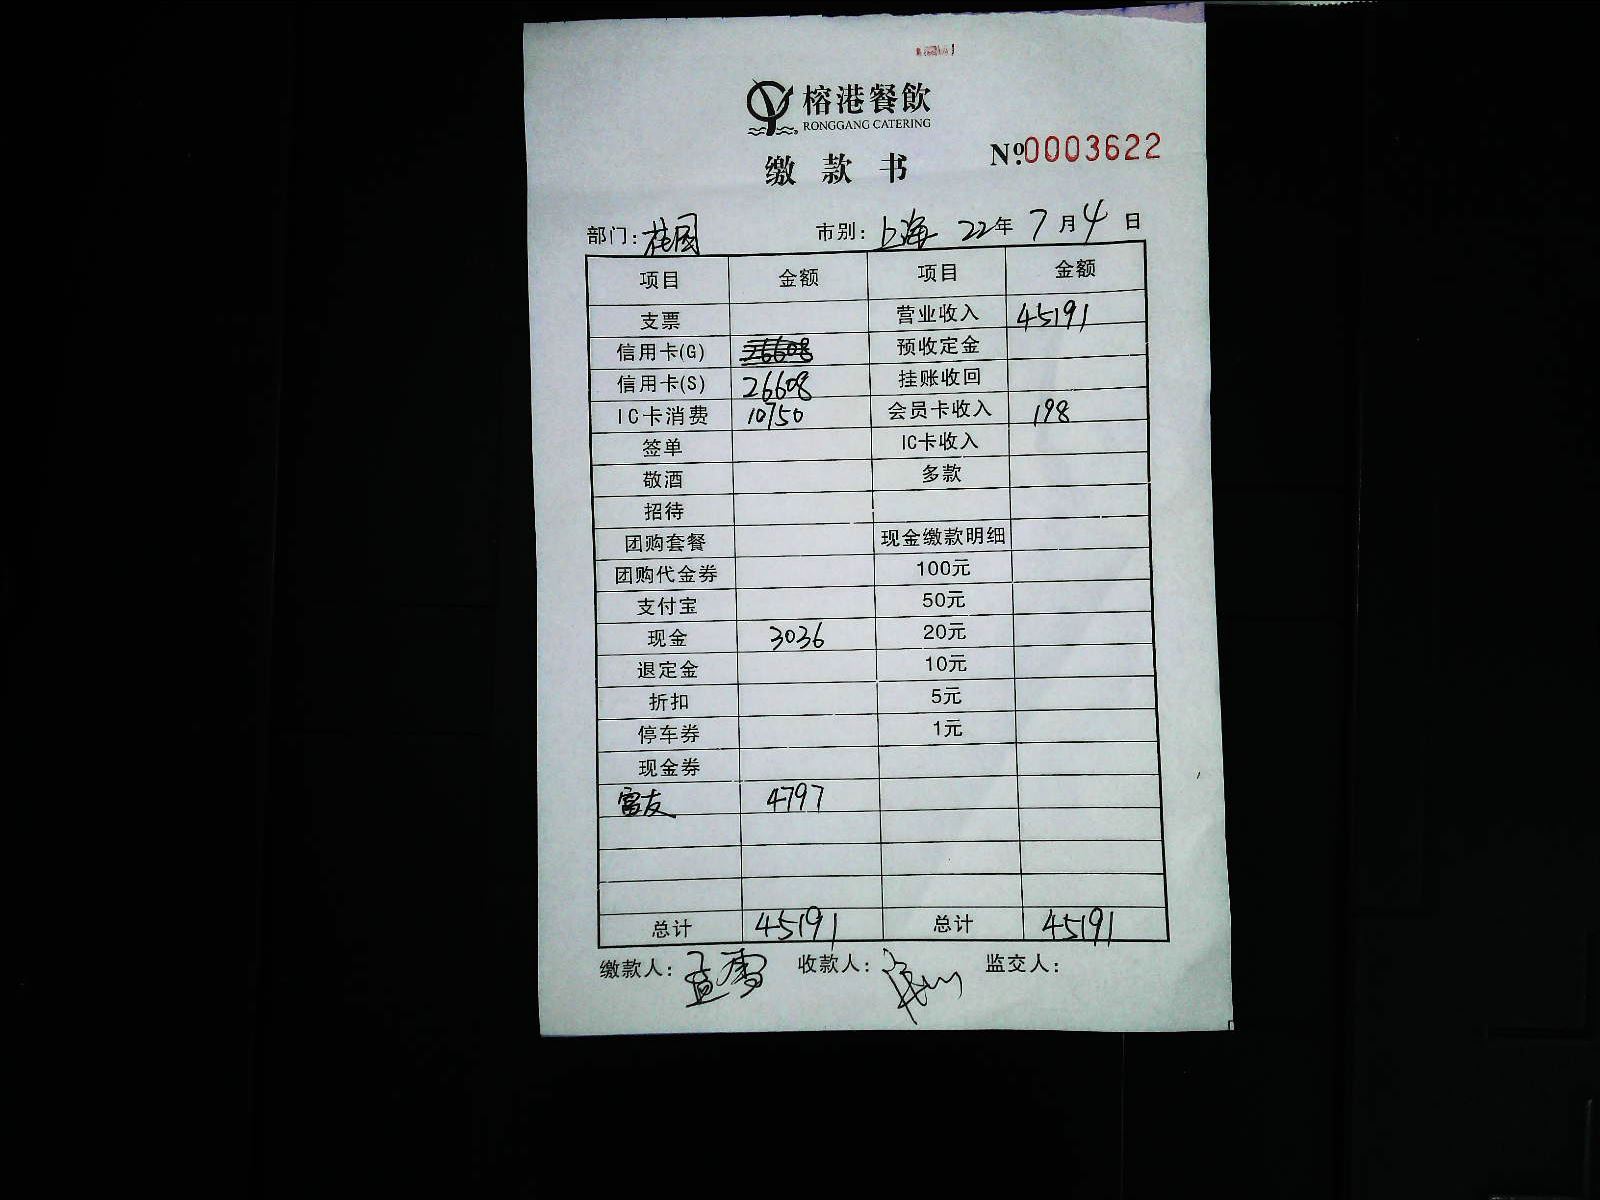 榕港餐飲
RONGGANG CATERING
缴款书
Nº.0003622
部门：花园 市别：上海 22年7月4日
项目 金额 项目 金额
支票 营业收入 45191
信用卡(G) 预收定金
信用卡(S) 26608 挂账收回
IC卡消费 10750 会员卡收入 198
签单 IC卡收入
敬酒 多款
招待
团购套餐 现金缴款明细
团购代金券 100元
支付宝 50元
现金 3036 20元
退定金 10元
折扣 5元
停车券 1元
现金券
富友 4797
总计 45191 总计 45191
缴款人：孟雪 收款人： 监交人：